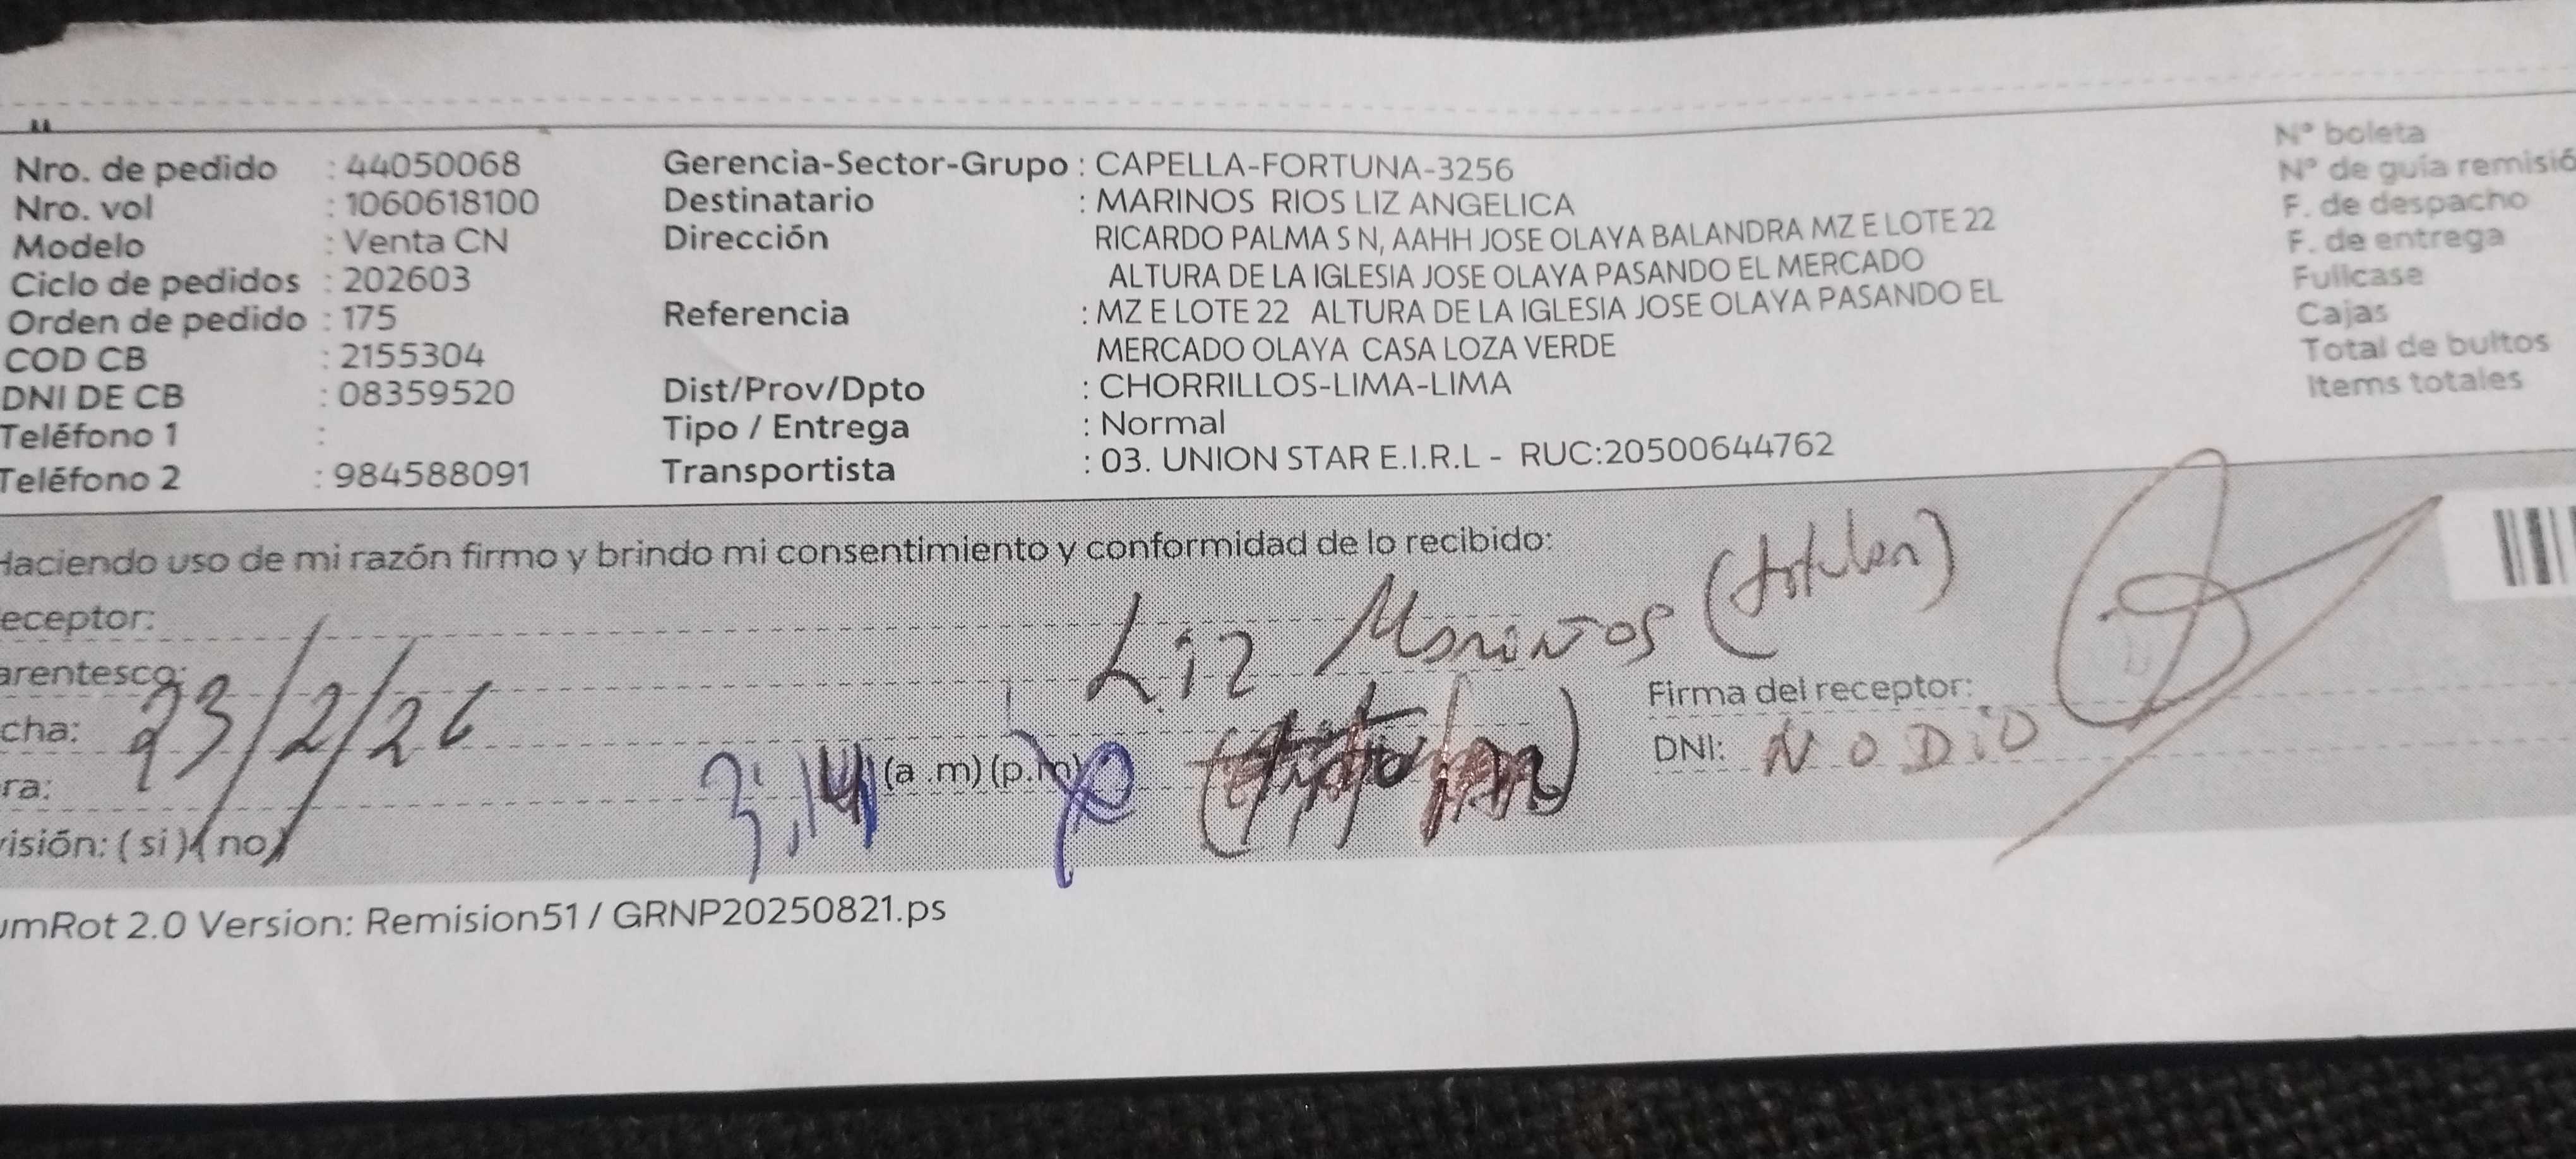 Nro. de pedido : 44050068
Nro. vol : 1060618100
Modelo : Venta CN
Ciclo de pedidos : 202603
Orden de pedido : 175
COD CB : 2155304
DNI DE CB : 08359520
Teléfono 1 :
Teléfono 2 : 984588091
Gerencia-Sector-Grupo : CAPELLA-FORTUNA-3256
Destinatario : MARINOS RIOS LIZ ANGELICA
Dirección RICARDO PALMA S N, AAHH JOSE OLAYA BALANDRA MZ E LOTE 22
ALTURA DE LA IGLESIA JOSE OLAYA PASANDO EL MERCADO
Referencia : MZ E LOTE 22 ALTURA DE LA IGLESIA JOSE OLAYA PASANDO EL
MERCADO OLAYA CASA LOZA VERDE
Dist/Prov/Dpto : CHORRILLOS-LIMA-LIMA
Tipo / Entrega : Normal
Transportista : 03. UNION STAR E.I.R.L - RUC:20500644762
N° boleta
N° de guía remisió
F. de despacho
F. de entrega
Fullcase
Cajas
Total de bultos
Items totales
Haciendo uso de mi razón firmo y brindo mi consentimiento y conformidad de lo recibido:
eceptor: Liz Marinos
arentesco:
cha: 23/2/26
ra: 3:14 (a .m) (p.m)
visión: ( si ) ( no )
Firma del receptor:
DNI: NO DIO
umRot 2.0 Version: Remision51 / GRNP20250821.ps